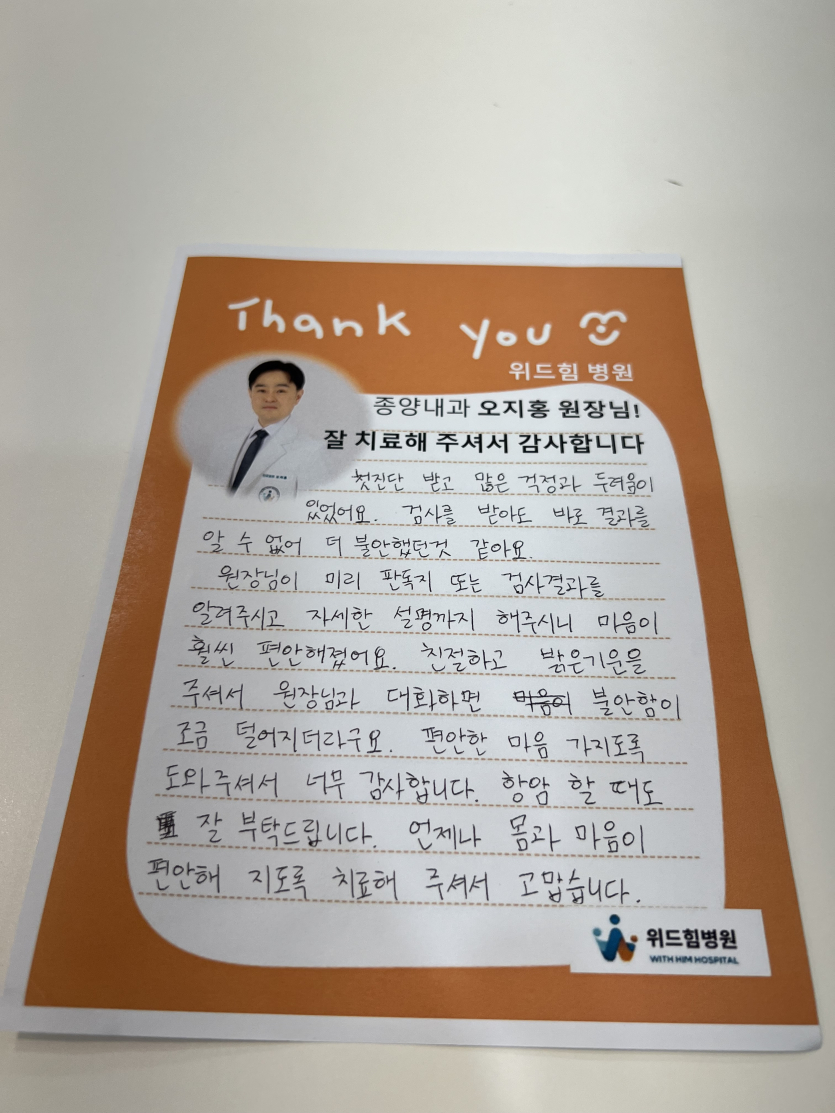 Thank you
위드힘 병원
종양내과 오지홍 원장님!
잘 치료해 주셔서 감사합니다
첫진단 받고 많은 걱정과 두려움이
있었어요. 검사를 받아도 바로 결과를
알 수 없어 더 불안했던것 같아요.
원장님이 미리 판독지 또는 검사결과를
알려주시고 자세한 설명까지 해주시니 마음이
훨씬 편안해졌어요. 친절하고 밝은기운을
주셔서 원장님과 대화하면 불안함이
조금 덜어지더라구요. 편안한 마음 가지도록
도와주셔서 너무 감사합니다. 항암 할 때도
잘 부탁드립니다. 언제나 몸과 마음이
편안해 지도록 치료해 주셔서 고맙습니다.
위드힘병원
WITH HIM HOSPITAL